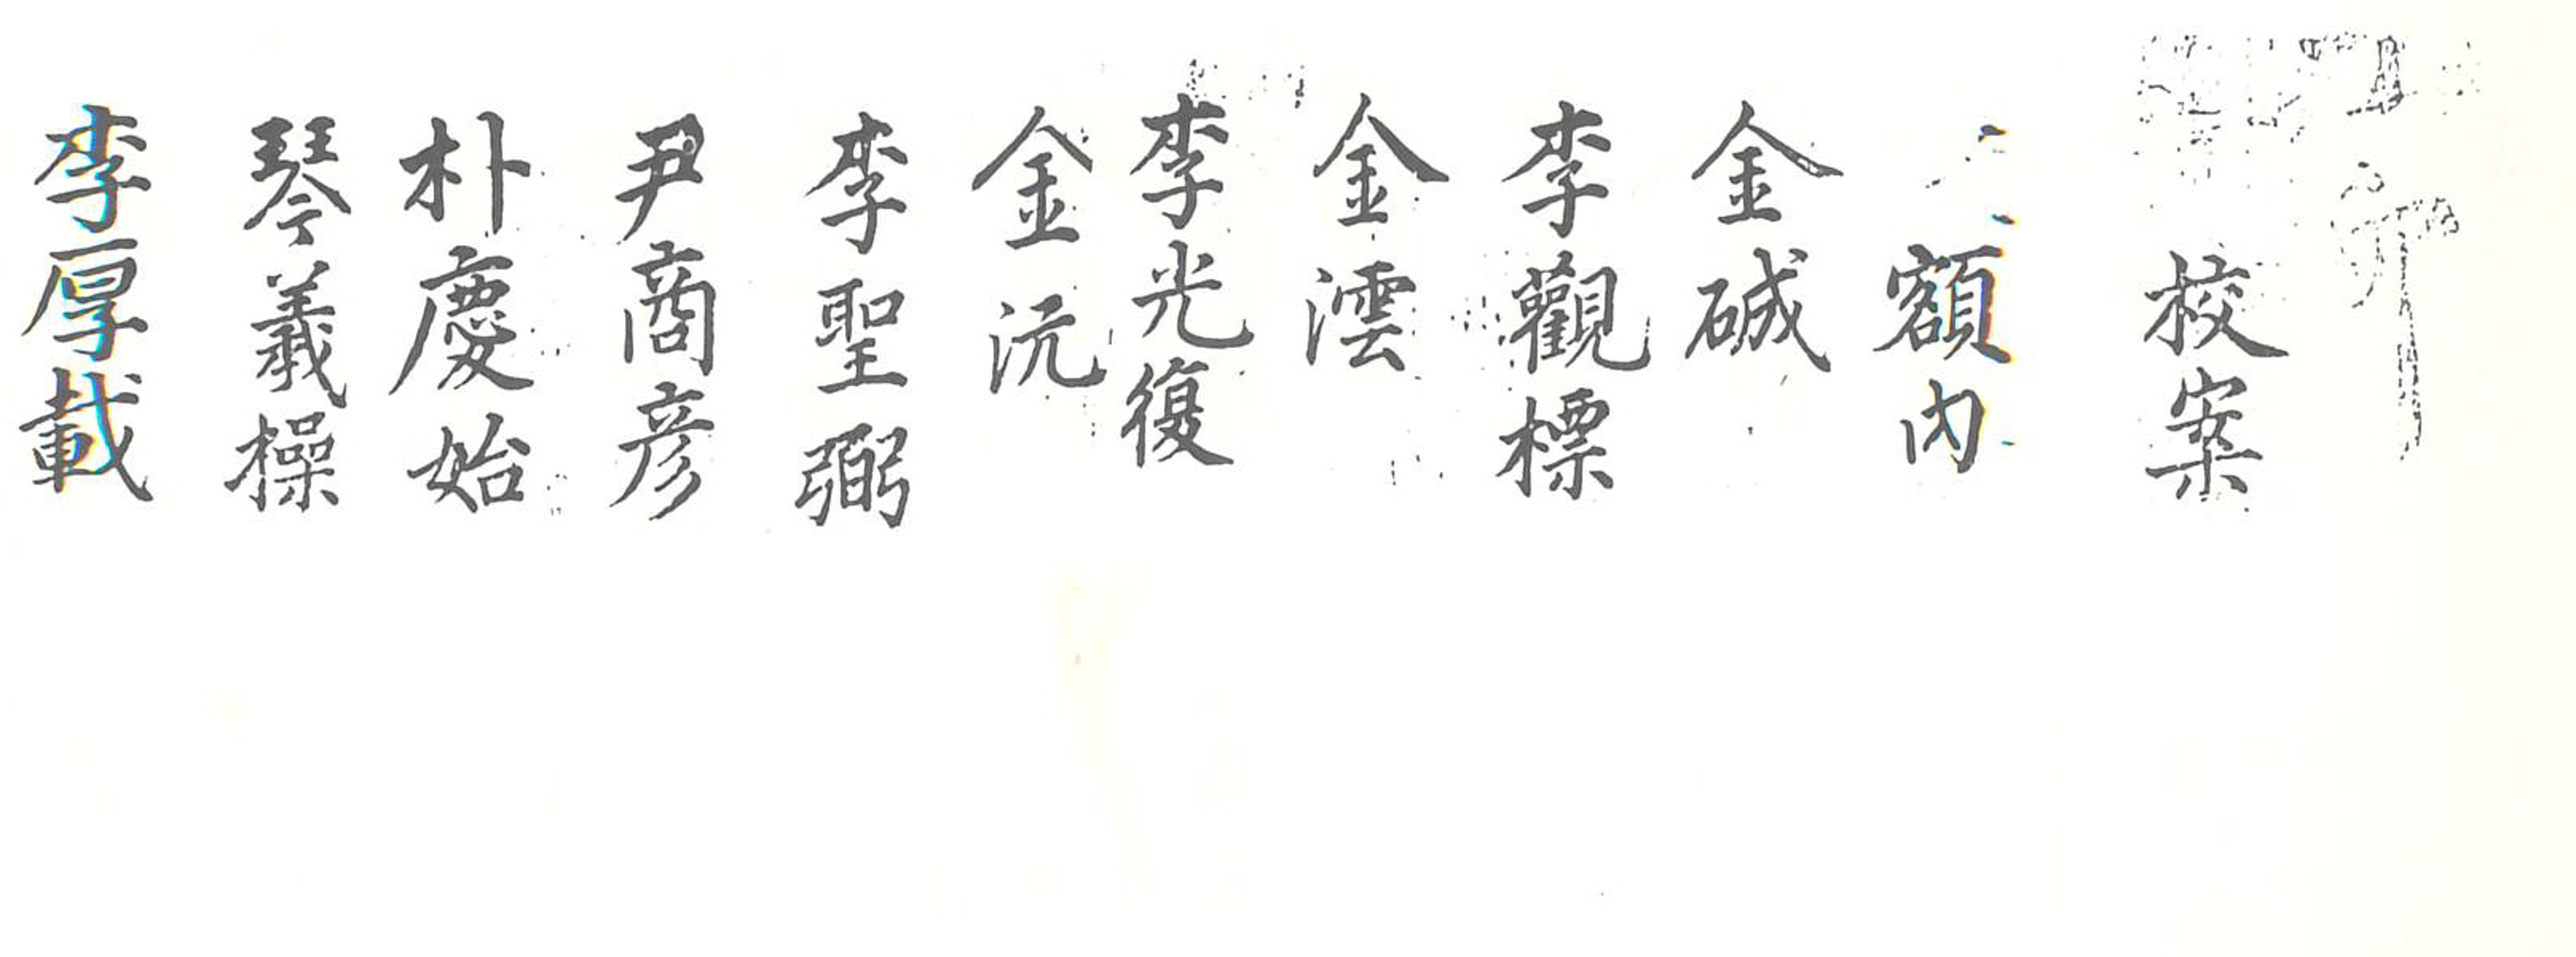 校案
額內
金碱
李觀標
金澐
李光復
金沅
李聖弼
尹商彦
朴慶始
琴義操
李厚載